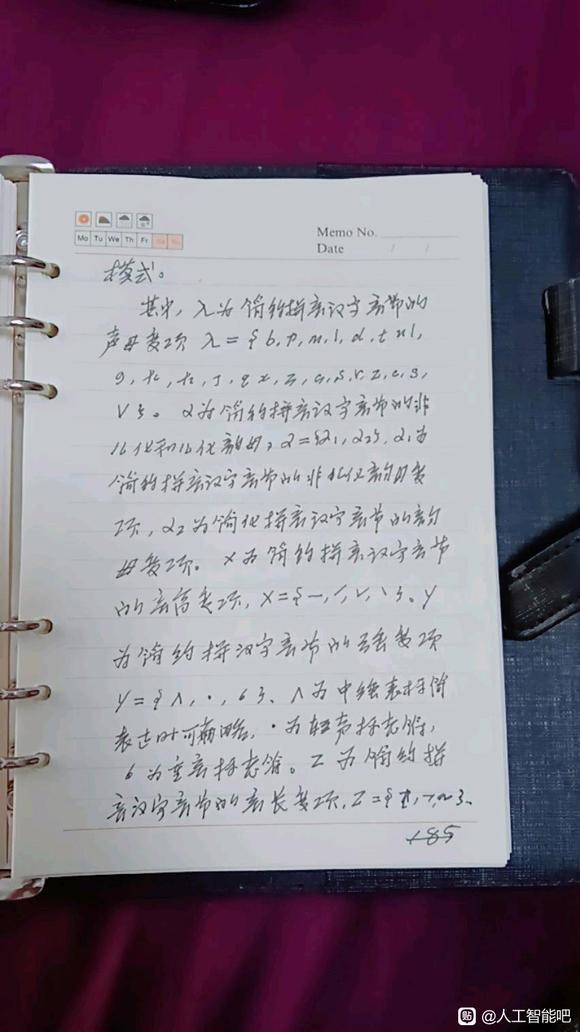 Mo Tu We Th Fr Sa Su
Memo No.
Date / /
模式。
其中，λ为简约拼音汉字音节的
声母变项 λ={b,p,m,l,d,t,n,l,
g,k,h,j,q,x,z,c,s,r,z,c,s,
V}。α为简约拼音汉字音节的非
儿化和儿化韵母，α={α1,α2}, α1为
简约拼音汉字音节的非儿化韵母变
项，α2为简化拼音汉字音节的韵
母变项。X为简约拼音汉字音节
的音高变项，X={一,/,∨,\}。Y
为简约拼汉字音节的音变项
Y={∧,·,6}、∧为中 表标
表达时可省略，·为轻声标志 ，
6为重音标志 。Z为简约拼
音汉字音节的音长变项，Z={
185
@人工智能吧